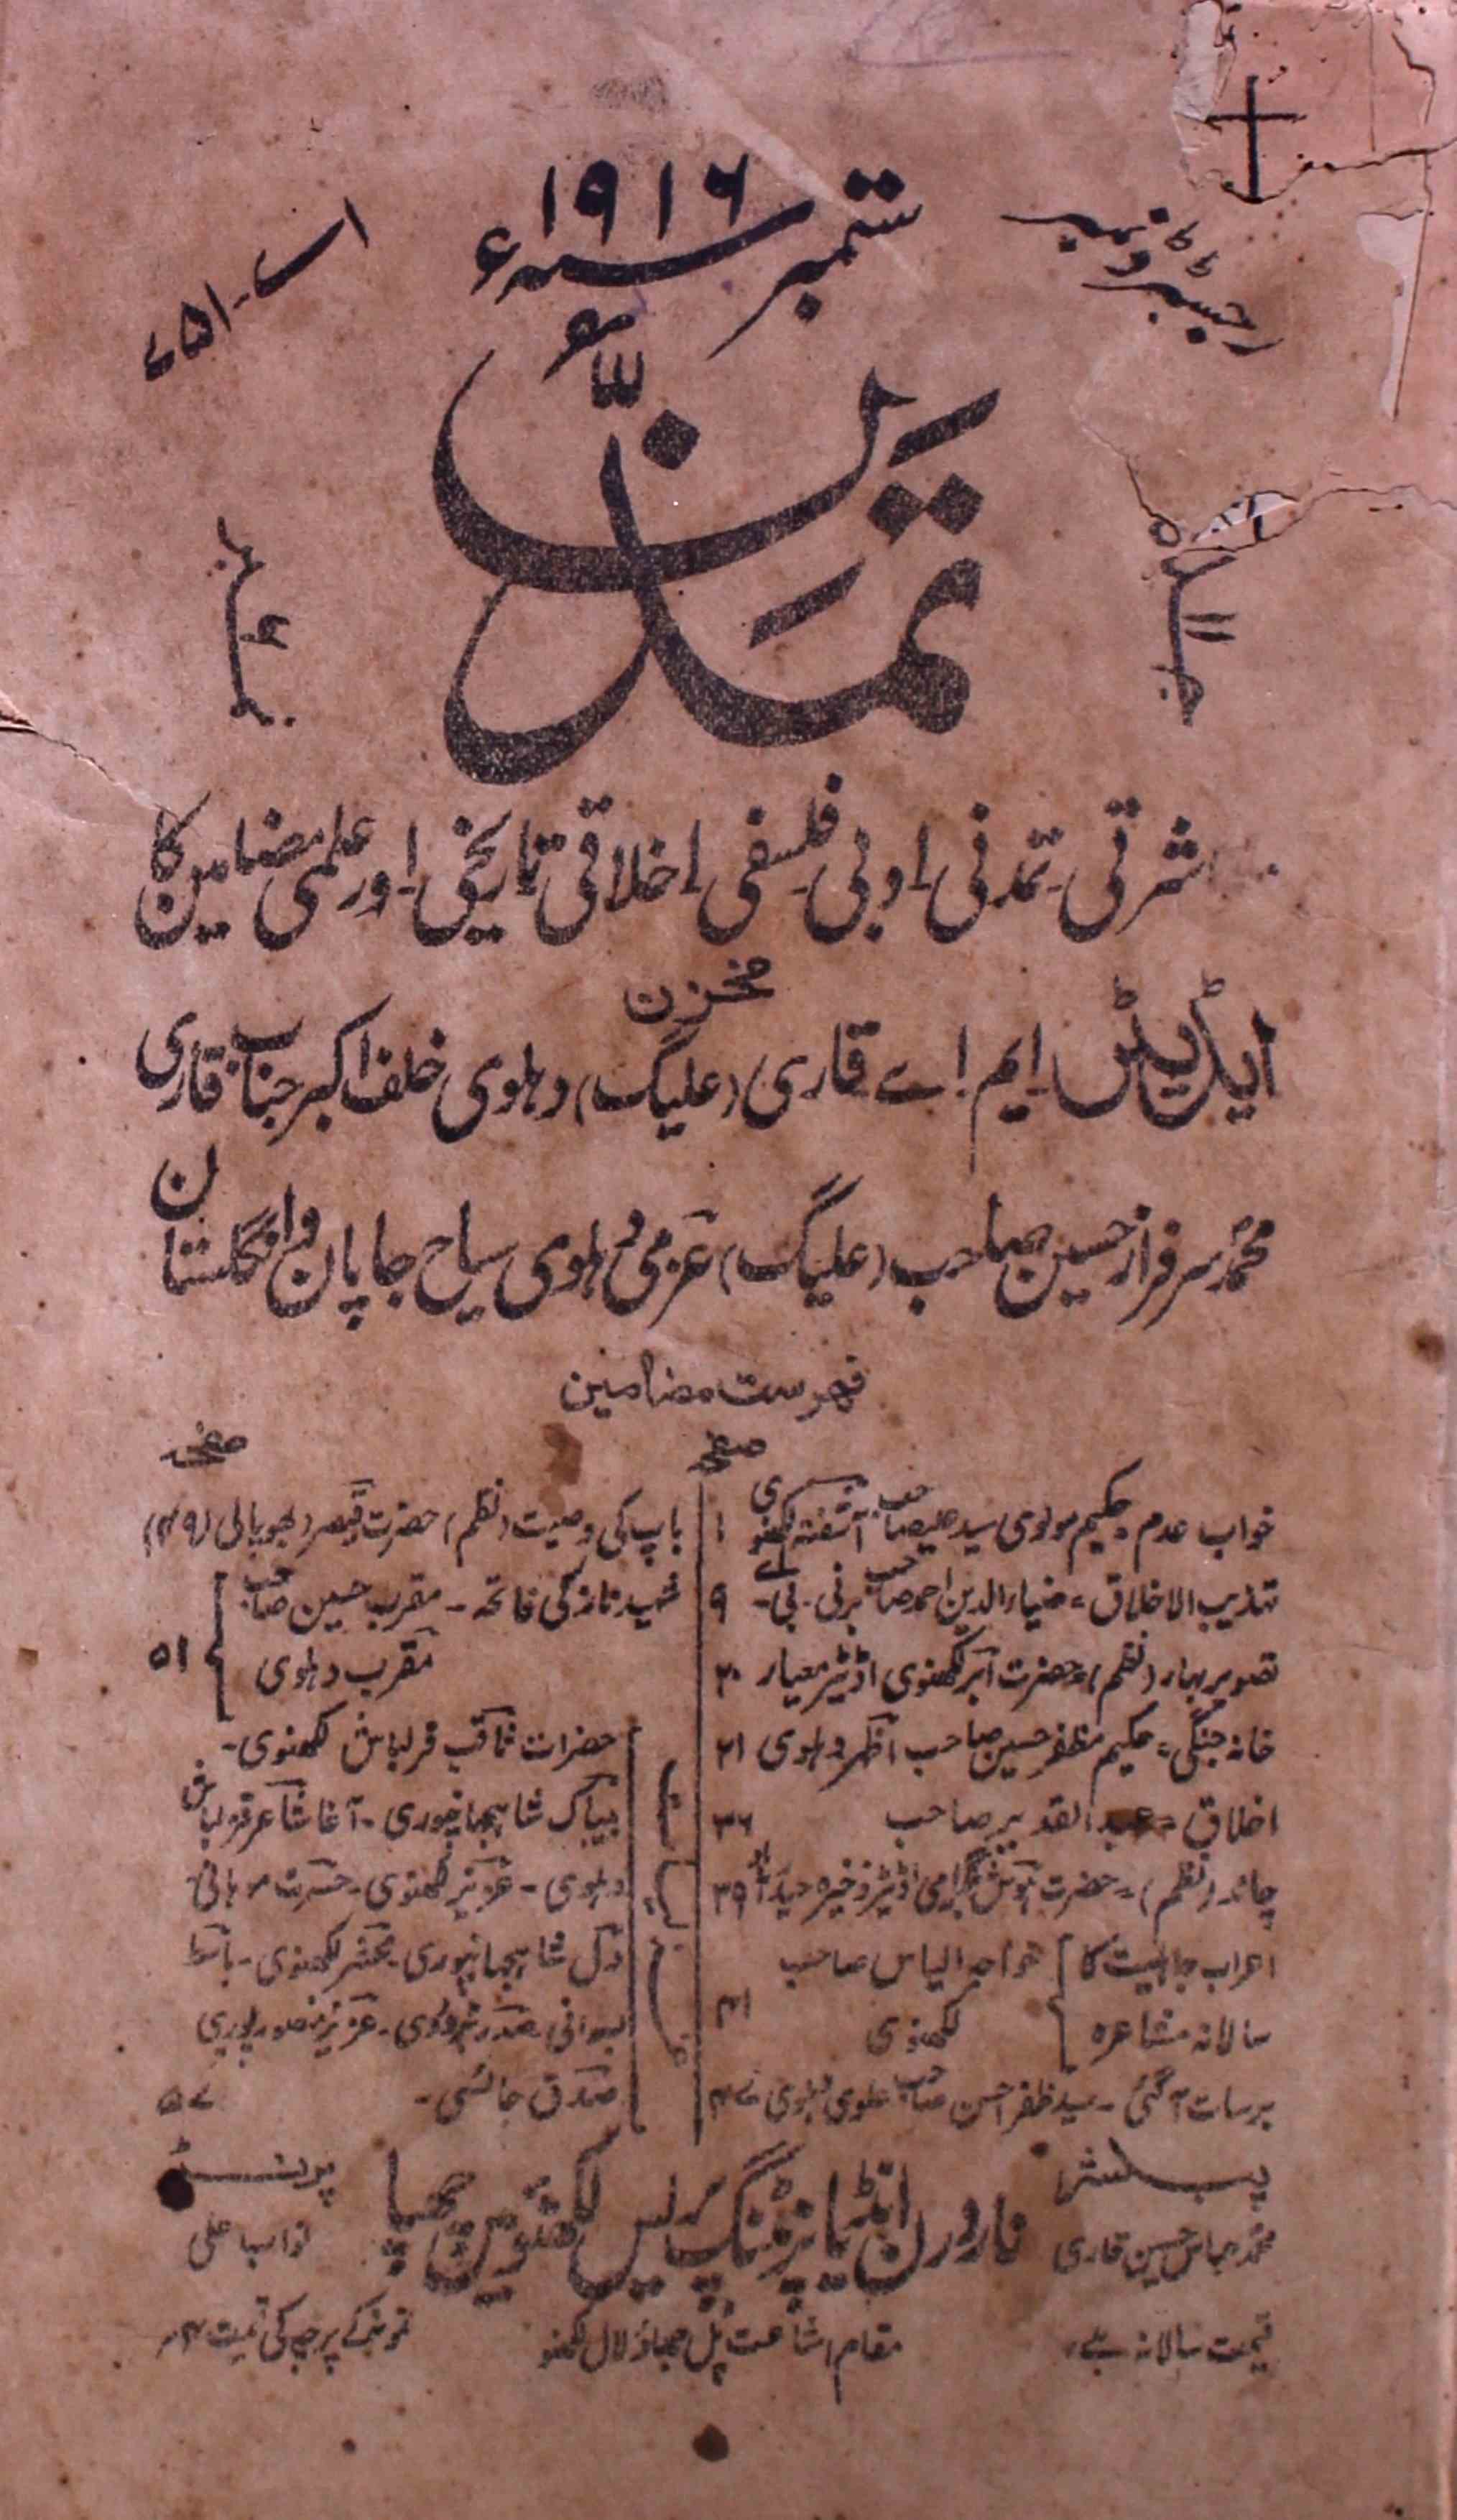 ستمبر ۱۹۱۶ سنہء
رجسٹرڈ نمبر
اے-۷۵۱
تمدّن
جلد
نمبر
شرتی - تمدنی ادبی فلسفی اخلاقی تاریخی اور علمی مضامین کا
مخزن
ایڈیٹر ایم اے قاری (علیگ) دہلوی خلف اکبر جناب قاری
محمد سرفراز حسین صاحب (علیگ) عزمی دہلوی سیاح جاپان و انگلستان
فہرست مضامین
صفحہ
خواب عدم - حکیم مولوی سید صاحب آشفتہ لکھنوی ۱
تہذیب الاخلاق - ضیاء الدین احمد صاحب برنی - بی - اے ۹
تصویر بہار (نظم) - حضرت ابر لکھنوی اڈیٹر معیار ۲۰
خانہ جنگی - حکیم مظفر حسین صاحب اظہر دہلوی ۲۱
اخلاق - عبد القدیر صاحب ۳۶
چاند (نظم) - حضرت ہوش بلگرامی اڈیٹر ذخیرہ حیدرآباد ۳۹
اعراب جاہلیت کا خواجہ الیاس صاحب
سالانہ مشاعرہ لکھنوی ۴۱
برسات آگئی - سید ظفر احسن صاحب علوی دہلوی ۴۷
صفحہ
باپ کی وصیت (نظم) حضرت قیصر (بھوپالی) (۴۹)
شہید ناز کی فاتحہ - مقرب حسین صاحب
مقرب دہلوی ۵۱
حضرات ثاقب قزلباش لکھنوی -
بیباک شاہجہانپوری - آغا شاعر قزلباش
دہلوی - عزیز لکھنوی - حسرت موہانی
دل شاہجہانپوری - محشر لکھنوی - باسط
بسوانی - عزیز منصورپوری
صدق جائسی - ۵۷
پبلشر
محمد عباس حسین قاری
نادرن انڈیا پرنٹنگ پریس لکھنؤ میں چھپا
پرنٹر
نواب علی
قیمت سالانہ
مقام اشاعت پل جھاؤ لال لکھنؤ
نمونہ کے پرچہ کی قیمت ۴؍